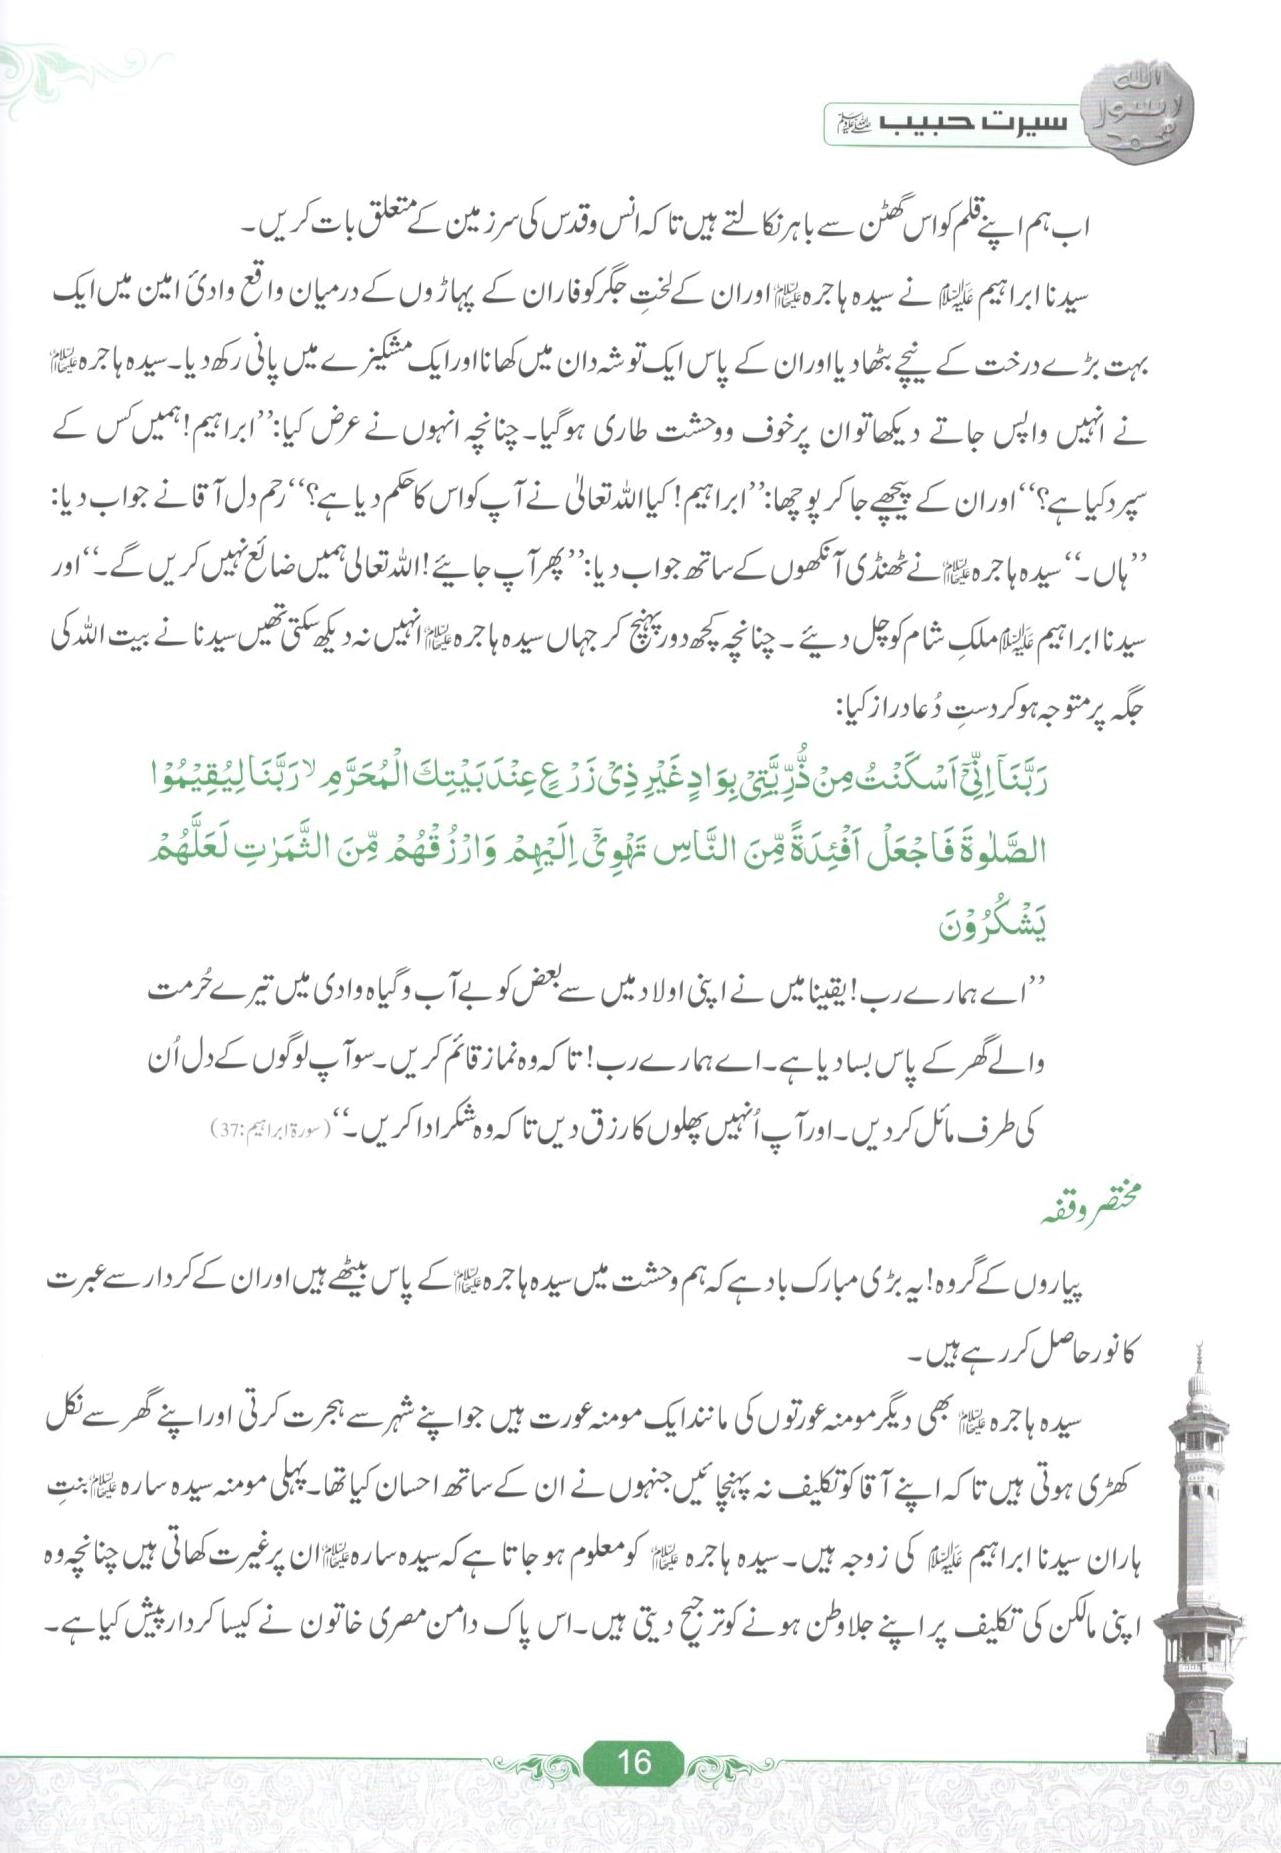 الله
رسول
محمد
سیرت حبیب ﷺ
اب ہم اپنے قلم کو اس گھٹن سے باہر نکالتے ہیں تاکہ انس و قدس کی سرزمین کے متعلق بات کریں۔
سیدنا ابراہیم علیہ السلام نے سیدہ ہاجرہ علیہا السلام اور ان کے لختِ جگر کو فاران کے پہاڑوں کے درمیان واقع وادیٔ امین میں ایک
بہت بڑے درخت کے نیچے بٹھا دیا اور ان کے پاس ایک توشہ دان میں کھانا اور ایک مشکیزے میں پانی رکھ دیا۔ سیدہ ہاجرہ علیہا السلام
نے انہیں واپس جاتے دیکھا تو ان پر خوف و وحشت طاری ہو گیا۔ چنانچہ انہوں نے عرض کیا: ’’ابراہیم! ہمیں کس کے
سپرد کیا ہے؟‘‘ اور ان کے پیچھے جا کر پوچھا: ’’ابراہیم! کیا اللہ تعالیٰ نے آپ کو اس کا حکم دیا ہے؟‘‘ رحم دل آقا نے جواب دیا:
’’ہاں۔‘‘ سیدہ ہاجرہ علیہا السلام نے ٹھنڈی آنکھوں کے ساتھ جواب دیا: ’’پھر آپ جائیے! اللہ تعالی ہمیں ضائع نہیں کریں گے۔‘‘ اور
سیدنا ابراہیم علیہ السلام ملکِ شام کو چل دیئے۔ چنانچہ کچھ دور پہنچ کر جہاں سیدہ ہاجرہ علیہا السلام انہیں نہ دیکھ سکتی تھیں سیدنا نے بیت اللہ کی
جگہ پر متوجہ ہو کر دستِ دُعا دراز کیا:
رَبَّنَاۤ اِنِّیْۤ اَسْكَنْتُ مِنْ ذُّرِّیَّتِیْ بِوَادٍ غَیْرِ ذِیْ زَرْعٍ عِنْدَ بَیْتِكَ الْمُحَرَّمِ ۙ رَبَّنَا لِیُقِیْمُوْا
الصَّلٰوةَ فَاجْعَلْ اَفْئِدَةً مِّنَ النَّاسِ تَهْوِیْۤ اِلَیْهِمْ وَارْزُقْهُمْ مِّنَ الثَّمَرٰتِ لَعَلَّهُمْ
یَشْكُرُوْنَ
’’اے ہمارے رب! یقینا میں نے اپنی اولاد میں سے بعض کو بے آب و گیاہ وادی میں تیرے حُرمت
والے گھر کے پاس بسا دیا ہے۔ اے ہمارے رب! تاکہ وہ نماز قائم کریں۔ سو آپ لوگوں کے دل اُن
کی طرف مائل کر دیں۔ اور آپ اُنہیں پھلوں کا رزق دیں تاکہ وہ شکر ادا کریں۔‘‘ (سورۃ ابراہیم: 37)
مختصر وقفہ
پیاروں کے گروہ! یہ بڑی مبارک باد ہے کہ ہم وحشت میں سیدہ ہاجرہ علیہا السلام کے پاس بیٹھے ہیں اور ان کے کردار سے عبرت
کا نور حاصل کر رہے ہیں۔
سیدہ ہاجرہ علیہا السلام بھی دیگر مومنہ عورتوں کی مانند ایک مومنہ عورت ہیں جو اپنے شہر سے ہجرت کرتی اور اپنے گھر سے نکل
کھڑی ہوتی ہیں تاکہ اپنے آقا کو تکلیف نہ پہنچائیں جنہوں نے ان کے ساتھ احسان کیا تھا۔ پہلی مومنہ سیدہ سارہ علیہا السلام بنتِ
ہاران سیدنا ابراہیم علیہ السلام کی زوجہ ہیں۔ سیدہ ہاجرہ علیہا السلام کو معلوم ہو جاتا ہے کہ سیدہ سارہ علیہا السلام ان پر غیرت کھاتی ہیں چنانچہ وہ
اپنی مالکن کی تکلیف پر اپنے جلاوطن ہونے کو ترجیح دیتی ہیں۔ اس پاک دامن مصری خاتون نے کیسا کردار پیش کیا ہے۔
16